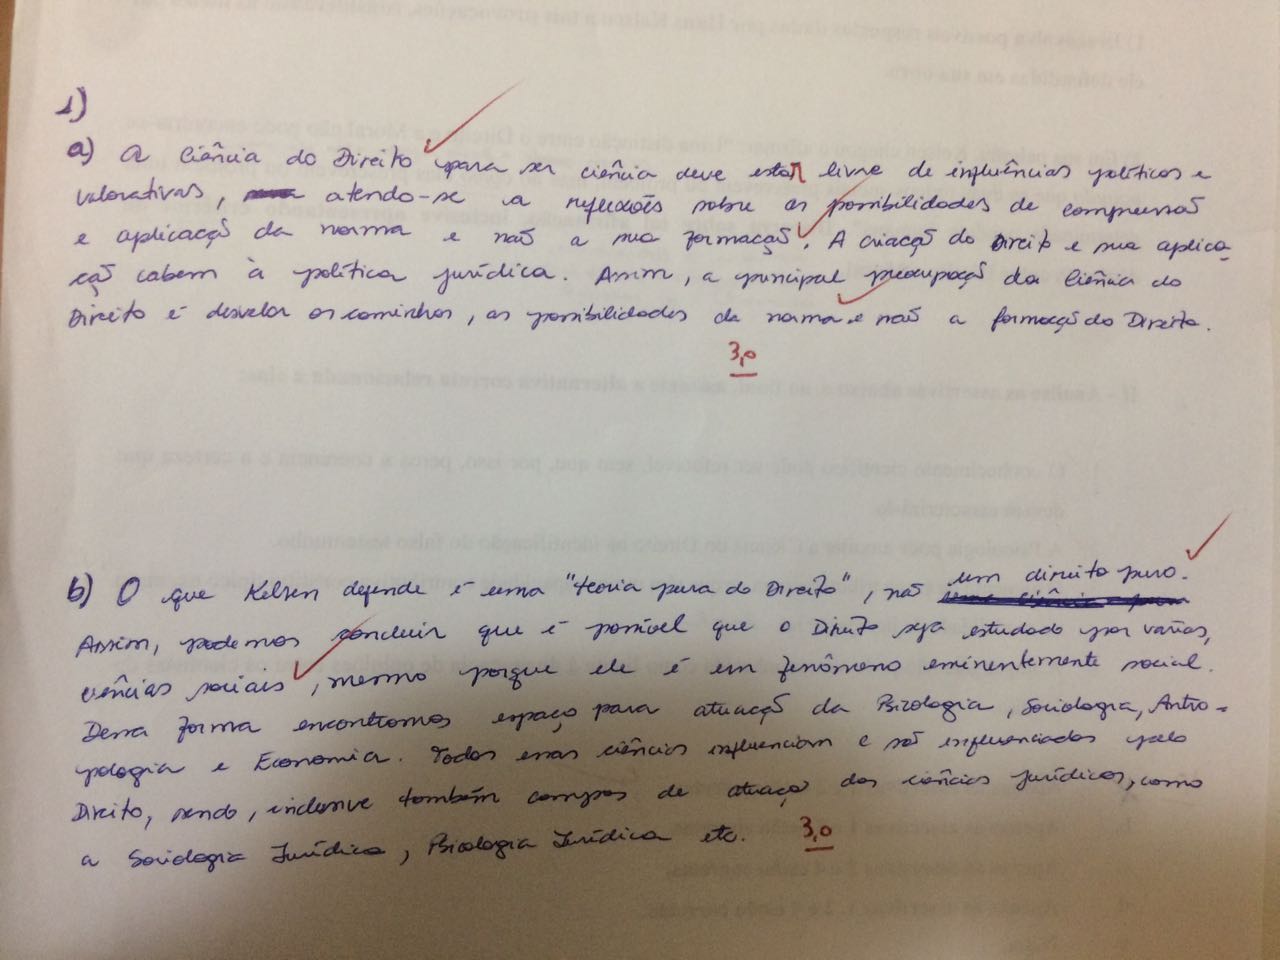 1)
a) A Ciência do Direito para ser ciência deve estar livre de influências políticas e
valorativas, atendo-se a reflexões sobre as possibilidades de compreensão
e aplicação da norma e não a sua formação. A criação do Direito e sua aplica-
ção cabem à política jurídica. Assim, a principal preocupação da Ciência do
Direito é desvelar os caminhos, as possibilidades da norma e não a formação do Direito.
3,0
b) O que Kelsen defende é uma "teoria pura do Direito", não um direito puro.
Assim, podemos concluir que é possível que o Direito seja estudado por várias,
ciências sociais, mesmo porque ele é um fenômeno eminentemente social.
Dessa forma encontramos espaço para atuação da Biologia, Sociologia, Antro-
pologia e Economia. Todas essas ciências influenciam e são influenciadas pelo
Direito, sendo, inclusive também campos de atuação das ciências jurídicas, como
a Sociologia Jurídica, Biologia Jurídica etc. 3,0